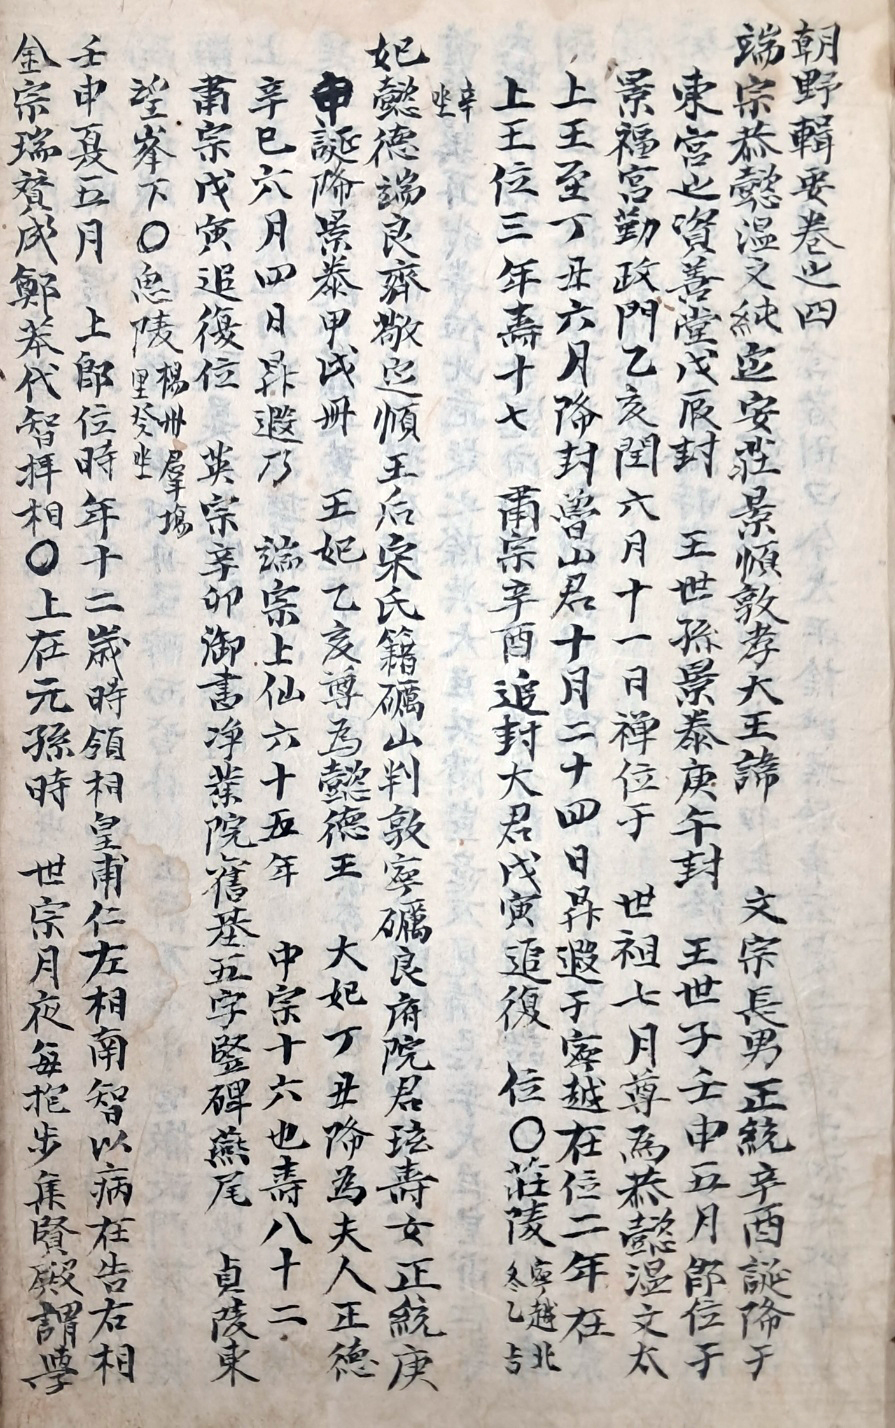 朝野輯要卷之四
端宗恭懿溫文純定安莊景順敦孝大王諱 文宗長男正統辛酉誕降于
東宮之資善堂戊辰封 王世孫景泰庚午封 王世子壬申五月卽位于
景福宮勤政門乙亥閏六月十一日禅位于 世祖七月尊爲恭懿溫文太
上王至丁丑六月降封魯山君十月二十四日昇遐于寧越在位二年在
上王位三年壽十七 肅宗辛酉追封大君戊寅追復 位〇莊陵寧越北
冬乙吉
辛
坐
妃懿德端良齊敬定順王后宋氏籍礪山判敦寧礪良府院君玹壽女正統庚
申誕降景泰甲戌冊 王妃乙亥尊爲懿德王 大妃丁丑降爲夫人正德
辛巳六月四日昇遐乃 端宗上仙六十五年 中宗十六也壽八十二
肅宗戊寅追復位 英宗辛卯御書净業院舊基五字竪碑燕尾 貞陵東
望峯下〇思陵楊州羣塲
里癸坐
壬申夏五月 上卽位時年十二歲時領相皇甫仁左相南智以病在告右相
金宗瑞贊成鄭苯代智拜相〇上在元孫時 世宗月夜每抱步集賢殿謂學